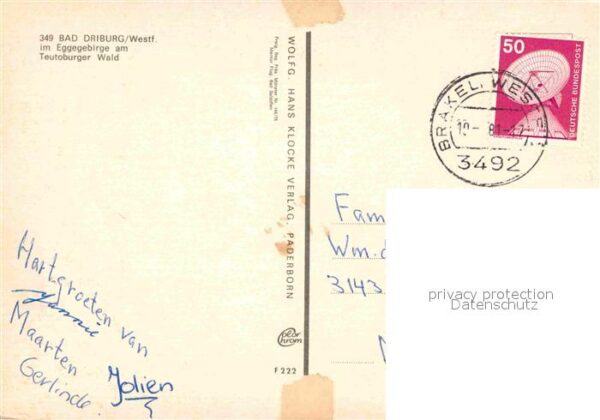 349 BAD DRIBURG/Westf.
im Eggegebirge am
Teutoburger Wald
WOLFG. HANS KLOCKE VERLAG, PADERBORN
50
DEUTSCHE BUNDESPOST
BRAKEL, WEST
3492
Fam
Wm.
3143
privacy protection
Datenschutz
Hartgroeten van
Jannie
Maarten Jolien
Gerlinde
Color
chrom
F 222